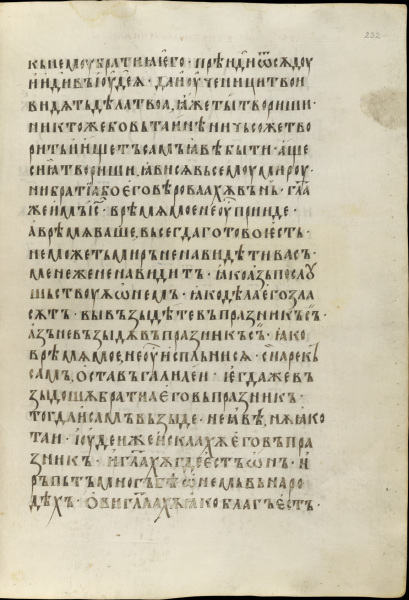 232
къ немоу братиꙗ его · прѣиди ѿсѫдоу
и иди въ їюдеѫ · да и оученици твои
видѧтъ дѣла твоа, ꙗже ты твориши ·
никтоже бо въ таинѣ ничьсоже тво
ритъ и ищетъ самъ ꙗвѣ быти · аще
сиꙗ твориши, ꙗвисѧ въсемоу мироу ·
ни братїа бо его вѣроваахѫ въ нь · гла
же имъ іс · врѣмѧ мое не оу прииде ·
а врѣмѧ ваше, въсегда готово есть ·
не можетъ миръ ненавидѣти васъ ·
мене же ненавидитъ · ꙗко азъ послоу
шьствоуѫ ѡ немъ · ꙗко дѣла его зла
сѫтъ · вы възыдѣте въ праꙁникъ съ ·
аꙁъ не въꙁыдѫ въ праꙁникъ съ · ꙗко
врѣмѧ мое, не оу исплънисѧ · сиꙗ рекъ
самъ, оста въ галилеи · ꙗ егда же въ
ꙁыдошѧ братиа его въ праꙁникъ ·
тогда и самъ въꙁыде · не ꙗвѣ, нѫ ꙗко
таи · їоудеи же искаахѫ его въ пра
ꙁникъ · и глаахѫ где естъ ѡнъ · и
ръпътъ многъ бѣ ѡ немь въ наро
дѣхъ · ови глаахѫ ꙗко благъ естъ ·